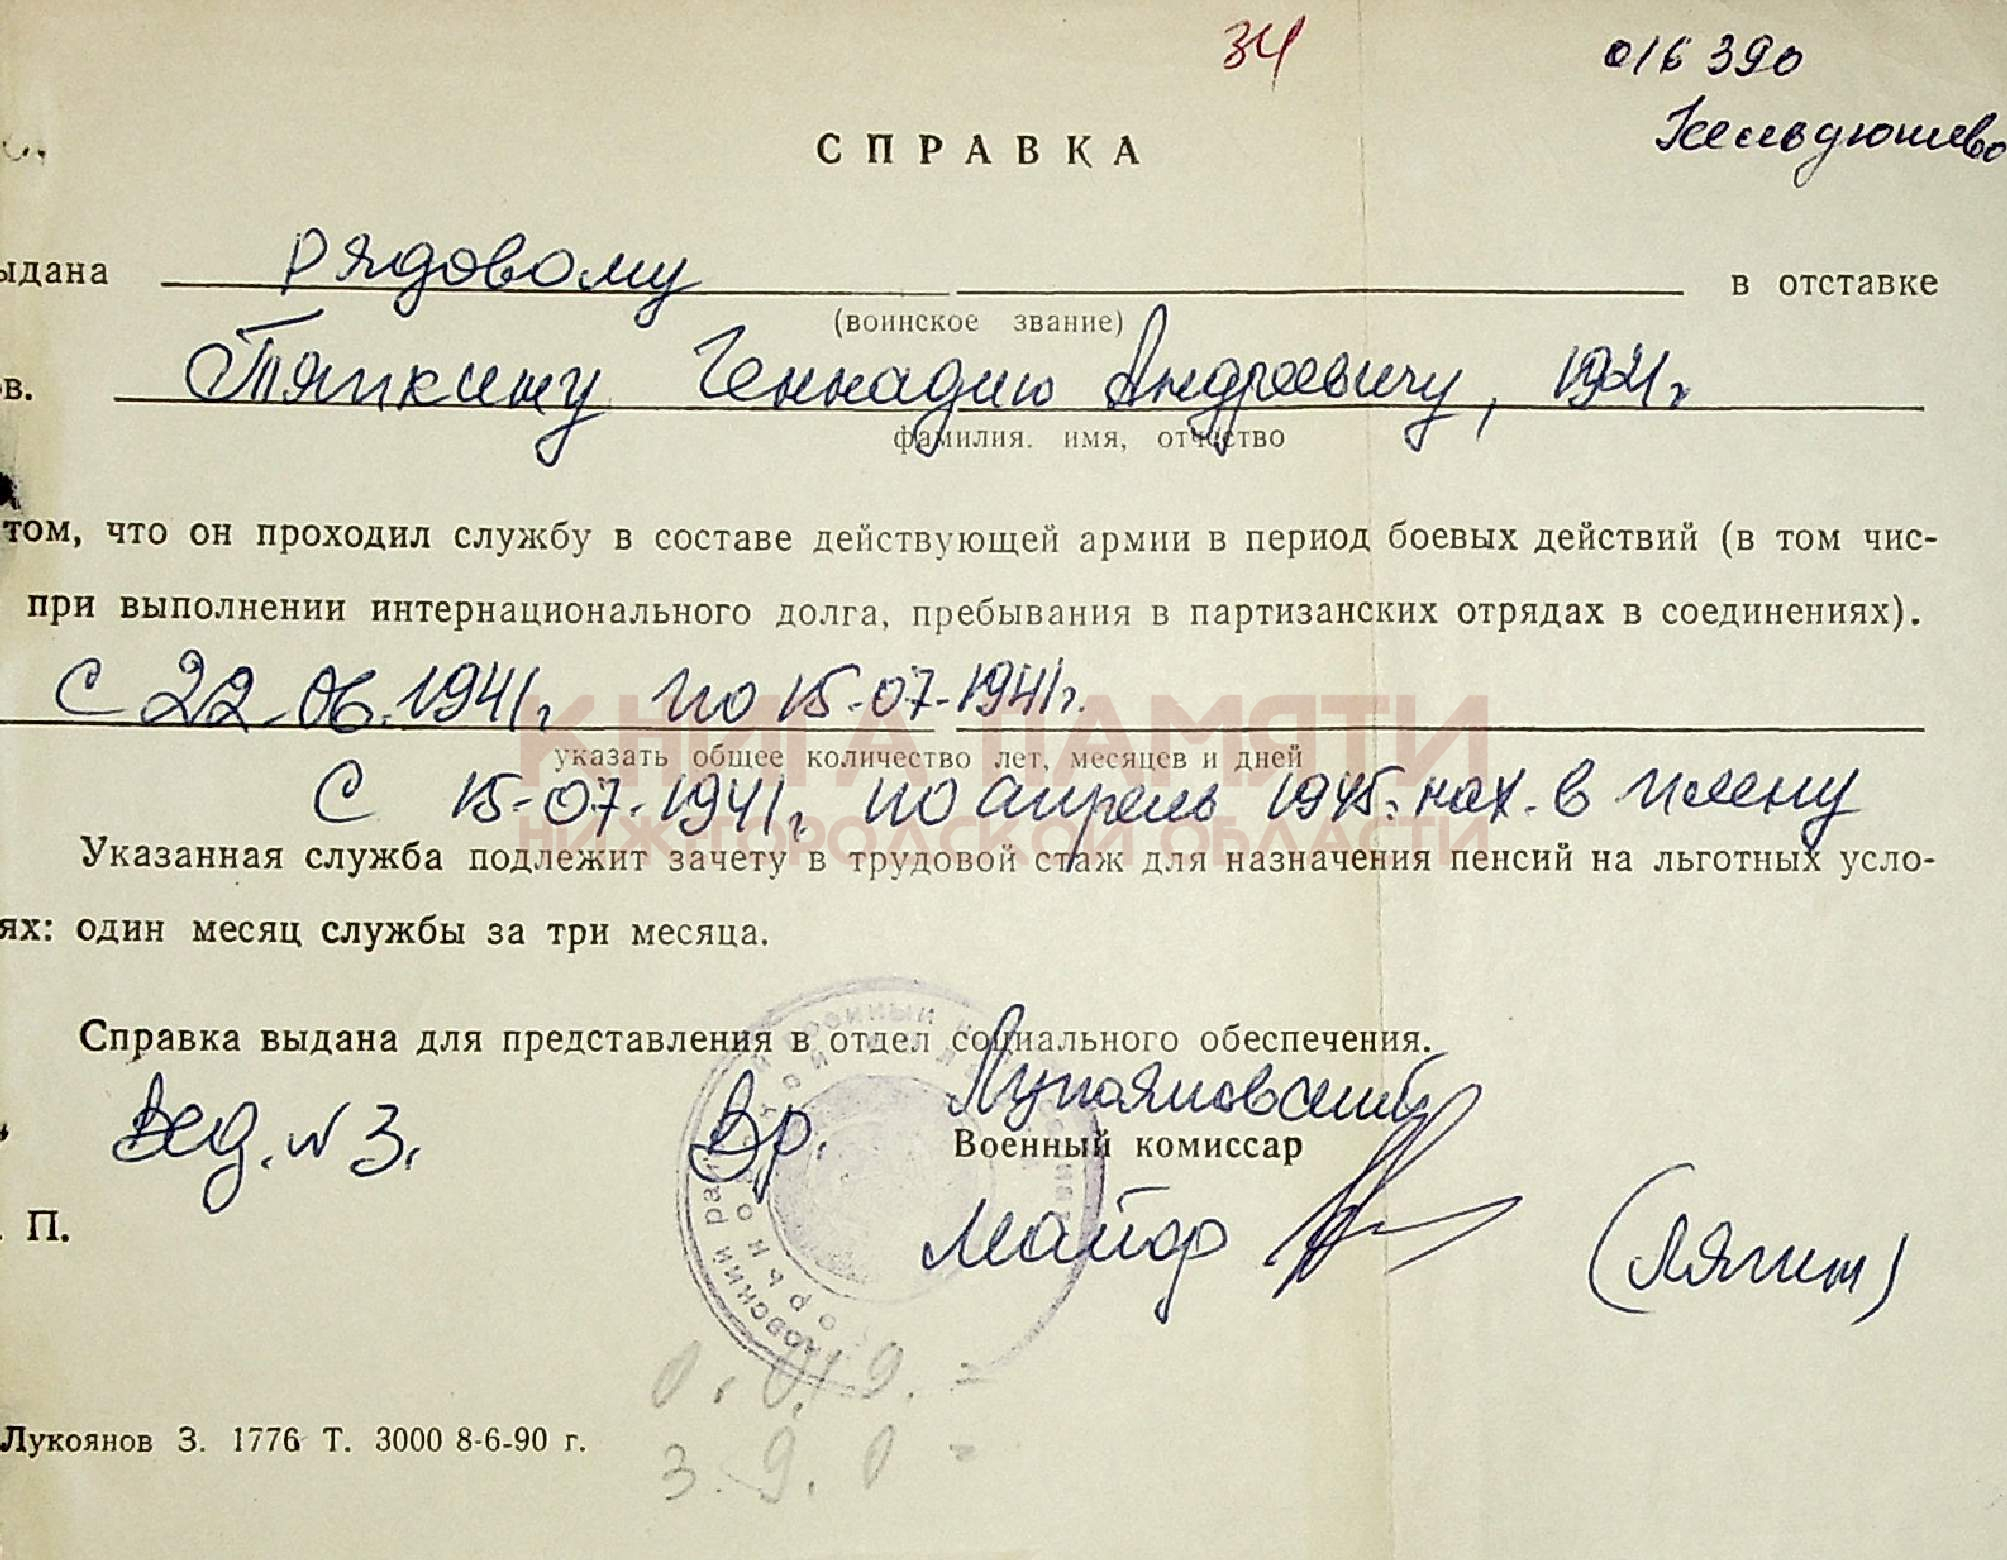 34
016 390
Кельдюшево
СПРАВКА
ыдана рядовому в отставке
(воинское звание)
в. Тяпкину Геннадию Андреевичу, 1921г
фамилия. имя, отчество
том, что он проходил службу в составе действующей армии в период боевых действий (в том чис-
при выполнении интернационального долга, пребывания в партизанских отрядах в соединениях).
С 22.06.1941г. по 15-07-1941г.
КНИГА ПАМЯТИ
указать общее количество лет, месяцев и дней
С 15-07-1941г. по апрель 1945г. нах. в плену
НИЖЕГОРОДСКОЙ ОБЛАСТИ
Указанная служба подлежит зачету в трудовой стаж для назначения пенсий на льготных усло-
ях: один месяц службы за три месяца.
Справка выдана для представления в отдел социального обеспечения.
Лукояновский
Вед. № 3. Вр. Военный комиссар
П. майор (Лягин)
0. 0/9. =
3. 9. 0 =
Лукоянов З. 1776 Т. 3000 8-6-90 г.